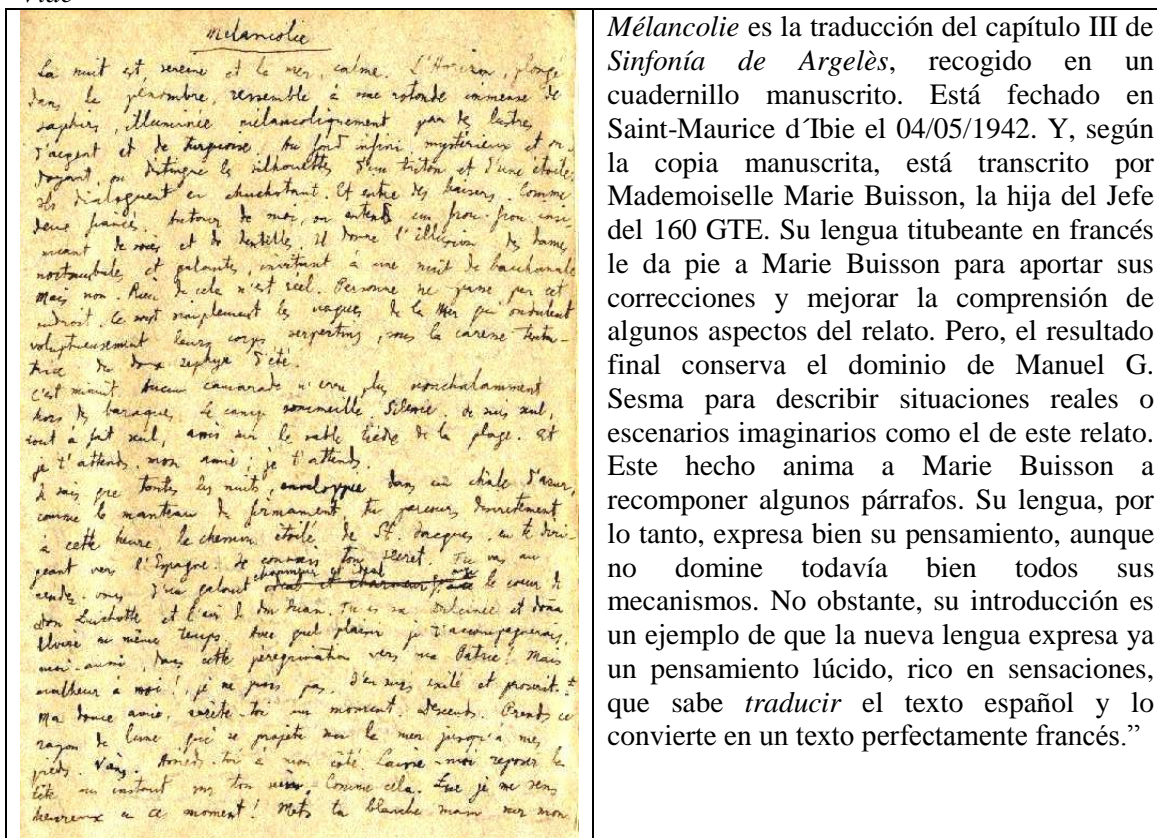 Mélancolie
La nuit est sereine et la mer, calme. L'Horizon, plongé
dans la pénombre, ressemble à une rotonde immense de
saphirs, illuminée mélancoliquement par des lustres
d'argent et de turquoise. Au fond infini, mystérieux et on-
doyant, on distingue les silhouettes d'un triton et d'une étoile.
Ils dialoguent en chuchotant. Et entre des baisers. Comme
deux fiancés. Autour de moi, on entend un frou-frou insi-
nuant de soies et de dentelles. Il donne l'illusion des dames
et galantes, invitant à une nuit de bacchanale
Mais non. Rien de cela n'est réel. Personne ne passe par cet
endroit. Ce sont simplement les vagues de la Mer qui ondulent
voluptueusement leurs corps serpentins, sous la caresse tenta-
trice du doux zéphyr d'été.
C'est minuit. Aucun camarade n'erre plus nonchalamment
hors des baraques. Le camp sommeille. Silence. Je suis seul,
tout à fait seul, assis sur le sable tiède de la plage. Et
je t'attends, mon amie; je t'attends.
Je sais que toutes les nuits, enveloppée dans un châle d'azur,
comme le manteau du firmament, tu parcours discrètement
à cette heure, le chemin étoilé de St. Jacques, en te diri-
geant vers l'Espagne. Je connais ton secret. Tu vas au
rendez-vous d'un galant et idéal avec le coeur de
Don Quichotte et l'air de don Juan. Tu es sa Dulcinée et doña
Elvire en même temps. Avec quel plaisir je t'accompagnerais,
mon amie, dans cette pérégrination vers ma Patrie! Mais
malheur à moi!, je ne puis pas. J'en suis exilé et proscrit.
Ma douce amie, arrête-toi un moment. Descends. Prends ce
rayon de lune qui se projette sur la mer jusqu'à mes
pieds. Viens. Assieds-toi à mon côté. Laisse-moi reposer la
tête un instant sur ton sein. Comme cela. Que je me sens
heureux en ce moment! Mets ta blanche main sur mon
Mélancolie es la traducción del capítulo III de
Sinfonía de Argelès, recogido en un
cuadernillo manuscrito. Está fechado en
Saint-Maurice d´Ibie el 04/05/1942. Y, según
la copia manuscrita, está transcrito por
Mademoiselle Marie Buisson, la hija del Jefe
del 160 GTE. Su lengua titubeante en francés
le da pie a Marie Buisson para aportar sus
correcciones y mejorar la comprensión de
algunos aspectos del relato. Pero, el resultado
final conserva el dominio de Manuel G.
Sesma para describir situaciones reales o
escenarios imaginarios como el de este relato.
Este hecho anima a Marie Buisson a
recomponer algunos párrafos. Su lengua, por
lo tanto, expresa bien su pensamiento, aunque
no domine todavía bien todos sus
mecanismos. No obstante, su introducción es
un ejemplo de que la nueva lengua expresa ya
un pensamiento lúcido, rico en sensaciones,
que sabe traducir el texto español y lo
convierte en un texto perfectamente francés.”